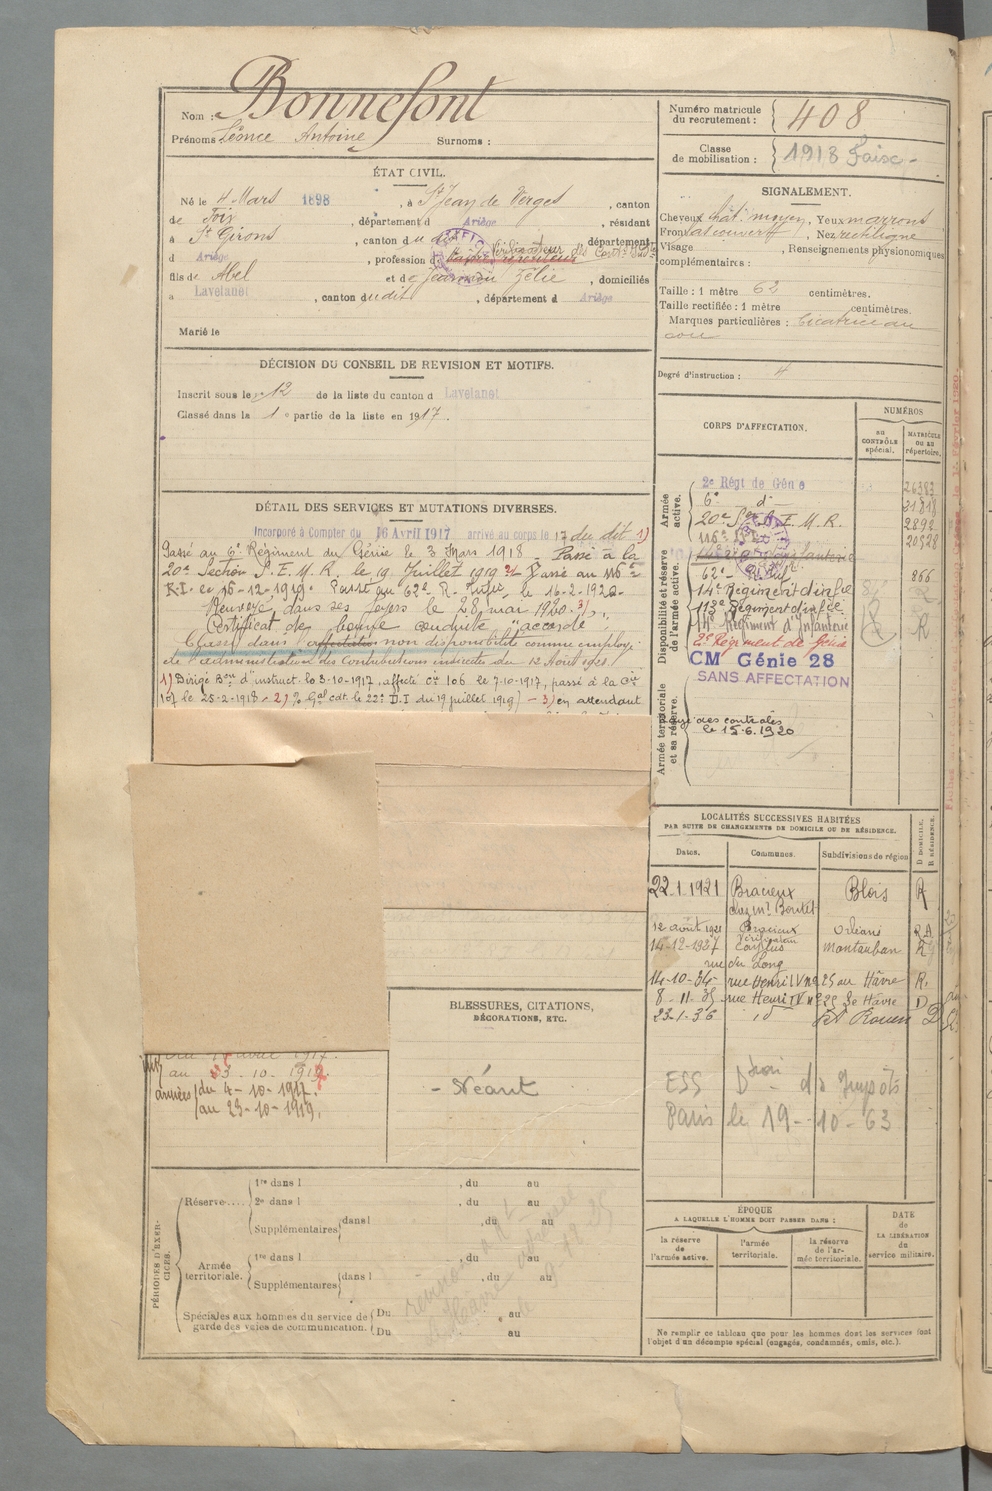 Nom : Bonnefont
Prénoms Léonce Antoine Surnoms :
Numéro matricule du recrutement : 408
Classe de mobilisation : 1918
ÉTAT CIVIL.
Né le 4 Mars 1898, à St Jean de Verges, canton
de Foix, département d Ariège, résidant
à St Girons, canton du dit, département
d Ariège, profession d Vérificateur des
fils de Abel et de Zélie, domiciliés
à Lavelanet, canton dudit, département d Ariège
Marié le
SIGNALEMENT.
Cheveux chât. moyen, Yeux marrons
Front, Nez rectiligne
Visage, Renseignements physionomiques
complémentaires :
Taille : 1 mètre 62 centimètres.
Taille rectifiée : 1 mètre centimètres.
Marques particulières : Cicatrice au
cou
Degré d'instruction : 4
DÉCISION DU CONSEIL DE REVISION ET MOTIFS.
Inscrit sous le no 12 de la liste du canton d Lavelanet
Classé dans la 1e partie de la liste en 1917.
DÉTAIL DES SERVICES ET MUTATIONS DIVERSES.
Incorporé à Compter du 16 Avril 1917 arrivé au corps le 17 du dit 1)
Passé au 6e Régiment du Génie le 3 Mars 1918 - Passé à la
20e Section S.E.M.R. le 19 Juillet 1919 2/ - Passé au 116e
R.I. le 16-12-1919. Passé au 62e R. Inf. le 16-2-1920
Renvoyé dans ses foyers le 28 mai 1920. 3)
Certificat de bonne conduite "accordé"
Classé dans l'affectation non disponibilité comme employé
de l'administration des Contributions indirectes du 12 Août 1921
1) Dirigé Bon d'instruct. le 3-10-1917, affecté Cie 106 le 7-10-1917, passé à la Cie
107 le 25-2-1918 - 2) Gal cdt. le 22e D.I du 19 juillet 1919) - 3) en attendant
CORPS D'AFFECTATION.
NUMÉROS
AU CONTRÔLE spécial.
MATRICULE OU AU répertoire.
Armée active.
2e Régt de Génie 26383
6e d° 31818
20e S.E.M.R. 2892
116e 20528
Disponibilité et réserve de l'armée active.
62e 866
14e Régiment d'infie
113e Régiment d'infie
14e Régiment d'Infanterie R
2e Régiment de Génie
CM Génie 28
SANS AFFECTATION
Armée territoriale et sa réserve.
des contrôles
le 15.6.1920
LOCALITÉS SUCCESSIVES HABITÉES
PAR SUITE DE CHANGEMENTS DE DOMICILE OU DE RÉSIDENCE.
Dates. Communes. Subdivisions de région D DOMICILE. R RÉSIDENCE.
22.1.1921 Bracieux Blois R
chez Mr Boutet
12 août 1921 Bracieux Orléans R A
14-12-1927 Caylus Montauban R
rue du Long
14-10-34 rue Henri IV n° 25 au Hâvre R.
8-11-35 rue Henri IV n° 25 Le Hâvre D
23-1-36 id Rouen D
ESS Don ds Impôts
Paris le 19-10-63
BLESSURES, CITATIONS,
DÉCORATIONS, ETC.
- Néant
au 3-10-1917.
armées du 4-10-1917.
au 23-10-1919.
PÉRIODES D'EXERCICES.
Réserve.... 1re dans l , du au
2e dans l , du au
Supplémentaires dans l , du au
Armée territoriale. 1re dans l , du au
Supplémentaires dans l , du au
Spéciales aux hommes du service de garde des voies de communication. Du au
Du au
ÉPOQUE
A LAQUELLE L'HOMME DOIT PASSER DANS :
la réserve de l'armée active. l'armée territoriale. la réserve de l'armée territoriale.
DATE de LA LIBÉRATION du service militaire.
Ne remplir ce tableau que pour les hommes dont les services font
l'objet d'un décompte spécial (engagés, condamnés, omis, etc.).